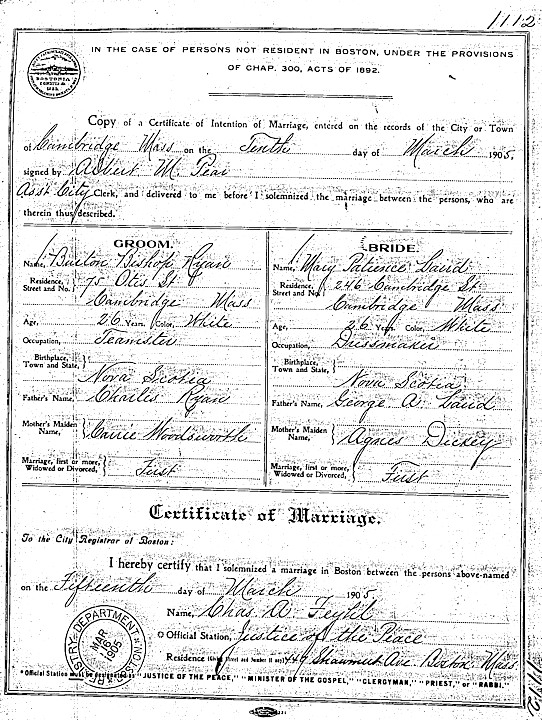 1112
IN THE CASE OF PERSONS NOT RESIDENT IN BOSTON, UNDER THE PROVISIONS
OF CHAP. 300, ACTS OF 1892.
Copy of a Certificate of Intention of Marriage, entered on the records of the City or Town
of Cambridge Mass on the Tenth day of March 1905,
signed by Albert M. Pear
Asst City Clerk, and delivered to me before I solemnized the marriage between the persons, who are
therein thus described.
GROOM.
Name, Burton Bishop Ryan
Residence, Street and No. 75 Otis St
Cambridge Mass
Age, 26 Years. Color, White
Occupation, Teamster
Birthplace, Town and State,
Nova Scotia
Father's Name, Charles Ryan
Mother's Maiden Name, Carrie Woodsworth
Marriage, first or more, Widowed or Divorced, First
BRIDE.
Name, Mary Patience Laird
Residence, Street and No. 246 Cambridge St
Cambridge Mass
Age, 26 Years. Color, White
Occupation, Dressmaker
Birthplace, Town and State,
Nova Scotia
Father's Name, George A. Laird
Mother's Maiden Name, Agnes Dickey
Marriage, first or more, Widowed or Divorced, First
Certificate of Marriage.
To the City Registrar of Boston:
I hereby certify that I solemnized a marriage in Boston between the persons above-named
on the Fifteenth day of March 1905.
Name, Chas. A.
Official Station, Justice of the Peace
Residence 449 Shawmut Ave. Boston, Mass.
REGISTRY DEPARTMENT BOSTON
MAR 16 1905
*Official Station must be designated as "JUSTICE OF THE PEACE," "MINISTER OF THE GOSPEL," "CLERGYMAN," "PRIEST," or "RABBI."